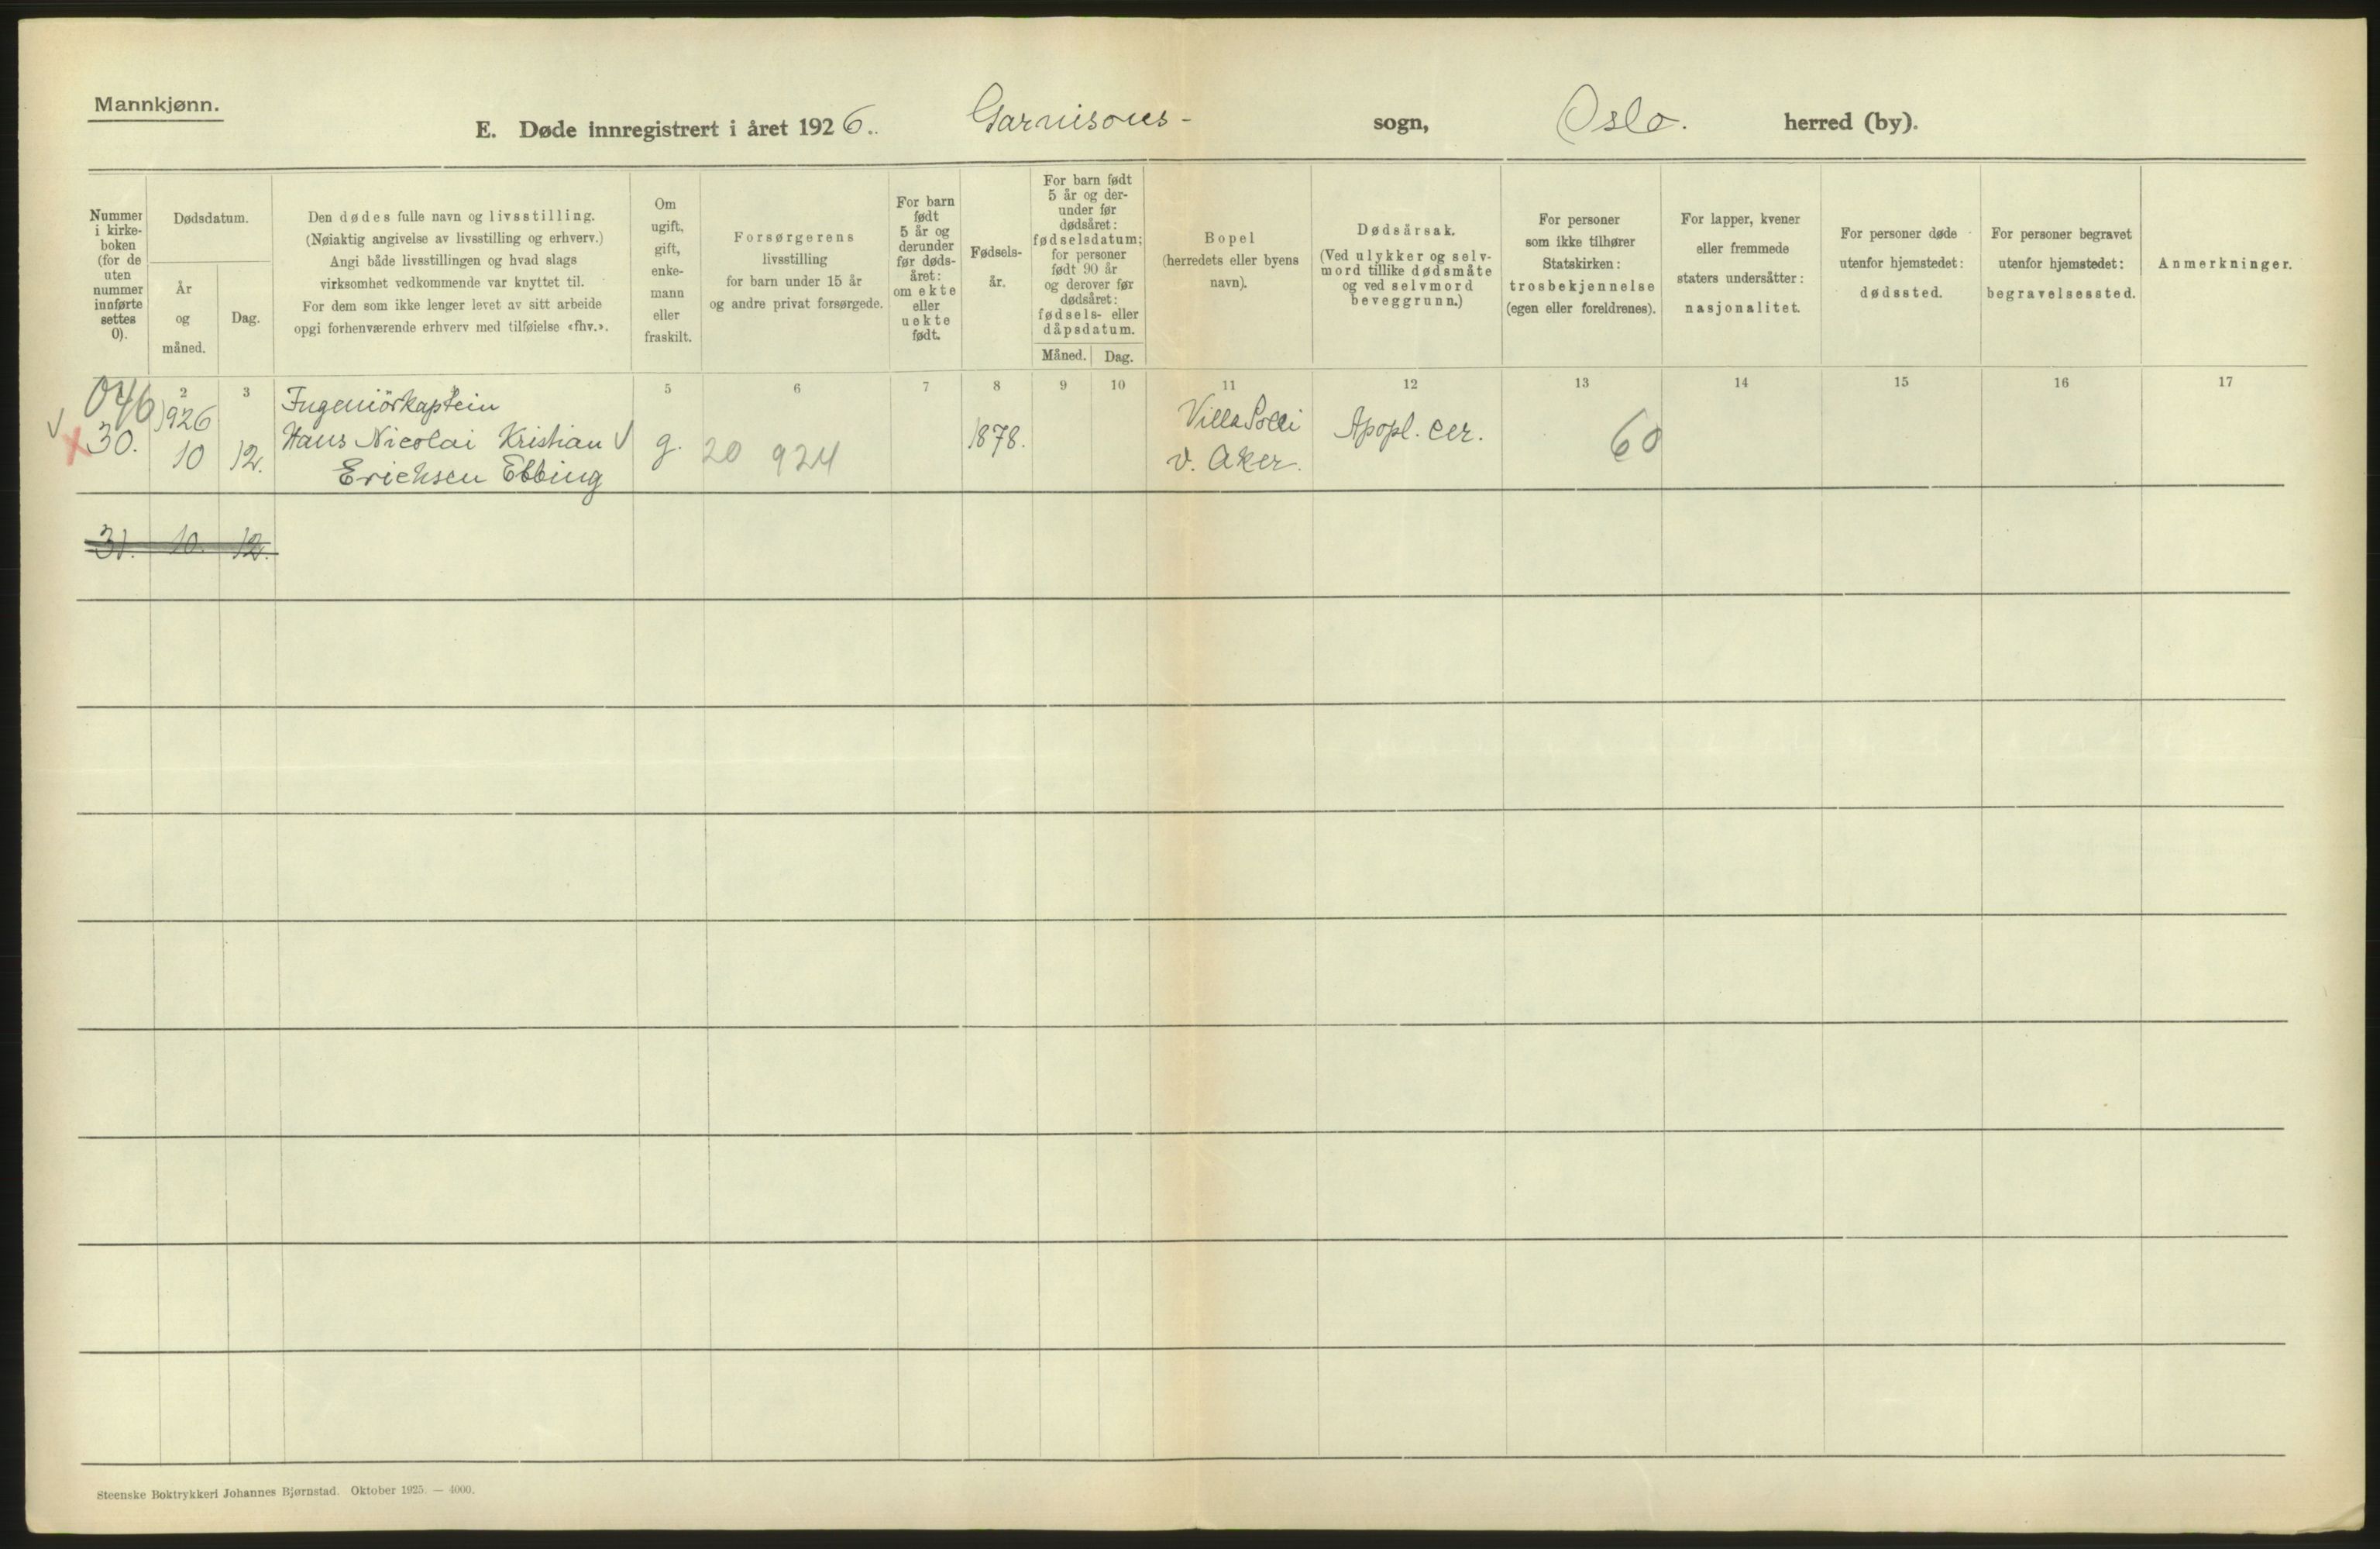 Mannkjønn.
E. Døde innregistrert i året 1926. Garnisons- sogn, Oslo. herred (by).
Nummer
i kirke-
boken
(for de
uten
nummer
innførte
settes
0).
Dødsdatum.
År
og
måned.
Dag.
Den dødes fulle navn og livsstilling.
(Nøiaktig angivelse av livsstilling og erhverv.)
Angi både livsstillingen og hvad slags
virksomhet vedkommende var knyttet til.
For dem som ikke lenger levet av sitt arbeide
opgi forhenværende erhverv med tilføielse «fhv.».
Om
ugift,
gift,
enke-
mann
eller
fraskilt.
Forsørgerens
livsstilling
for barn under 15 år
og andre privat forsørgede.
For barn
født
5 år og
derunder
før døds-
året:
om ekte
eller
uekte
født.
Fødsels-
år.
For barn født
5 år og der-
under før
dødsåret:
fødselsdatum;
for personer
født 90 år
og derover før
dødsåret:
fødsels- eller
dåpsdatum.
Måned. Dag.
Bopel
(herredets eller byens
navn).
Dødsårsak.
(Ved ulykker og selv-
mord tillike dødsmåte
og ved selvmord
beveggrunn.)
For personer
som ikke tilhører
Statskirken:
trosbekjennelse
(egen eller foreldrenes).
For lapper, kvener
eller fremmede
staters undersåtter:
nasjonalitet.
For personer døde
utenfor hjemstedet:
dødssted.
For personer begravet
utenfor hjemstedet:
begravelsessted.
Anmerkninger.
2 3 5 6 7 8 9 10 11 12 13 14 15 16 17
046
1926
Ingeniörkaptein
Villa Solli
30. 10 12. Hans Nicolai Kristian V g. 20 924 1878. Apopl. cer. 60
Erichsen Ebbing
v. Aker.
31. 10. 12.
Steenske Boktrykkeri Johannes Bjørnstad. Oktober 1925. — 4000.